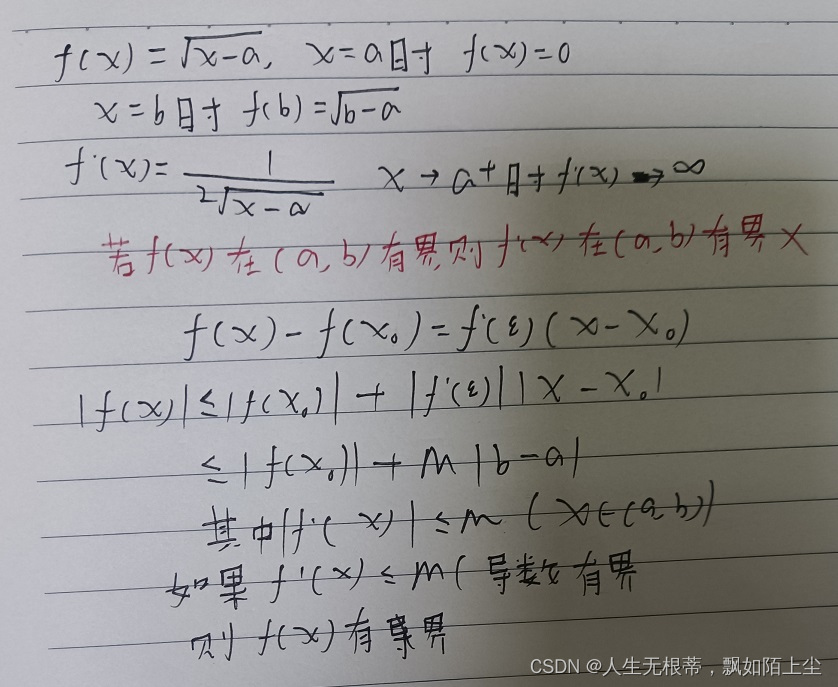 f(x)=√(x-a), x=a时 f(x)=0
x=b时 f(b)=√(b-a)
f'(x)= 1/(2√(x-a)) x→a+时 f'(x)→∞
若f(x)在(a,b)有界,则f'(x)在(a,b)有界 ×
f(x)-f(x₀)=f'(ξ)(x-x₀)
|f(x)|≤|f(x₀)|+|f'(ξ)||x-x₀|
≤|f(x₀)|+M|b-a|
其中|f'(x)|≤M (x∈(a,b))
如果 f'(x)≤M(导数有界
则 f(x)有界
CSDN @人生无根蒂，飘如陌上尘